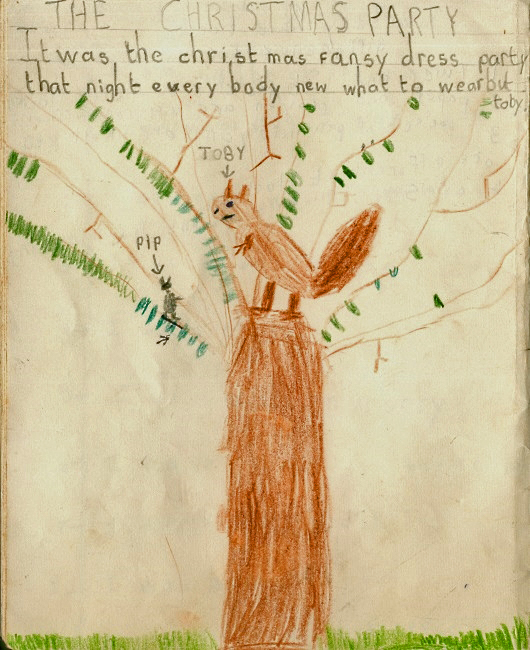 THE CHRISTMAS PARTY
It was the christ mas fansy dress party
that night every body new what to wear but
toby.
TOBY
PIP